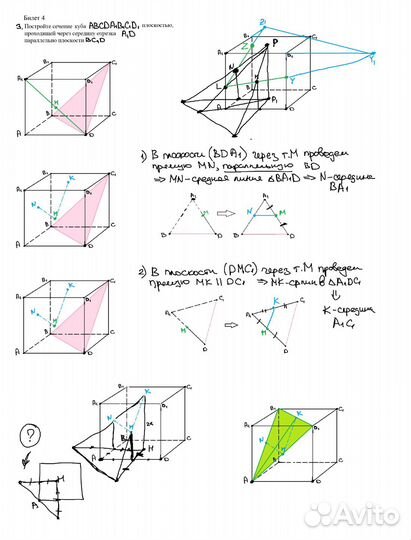 Билет 4
3. Постройте сечение куба ABCDA₁B₁C₁D₁ плоскостью,
проходящей через середину отрезка A₁D
параллельно плоскости BC₁D
1) В плоскости (BDA₁) через т.М проводем
прямую MN, параллельную BD
⇒ MN-средняя линия ΔBA₁D ⇒ N-середина
BA₁
2) В плоскости (DMC₁) через т.М проводем
прямую MK || DC₁ ⇒ MK-ср.лин в ΔA₁DC₁
⇓
K-середина
A₁C₁
?
Avito